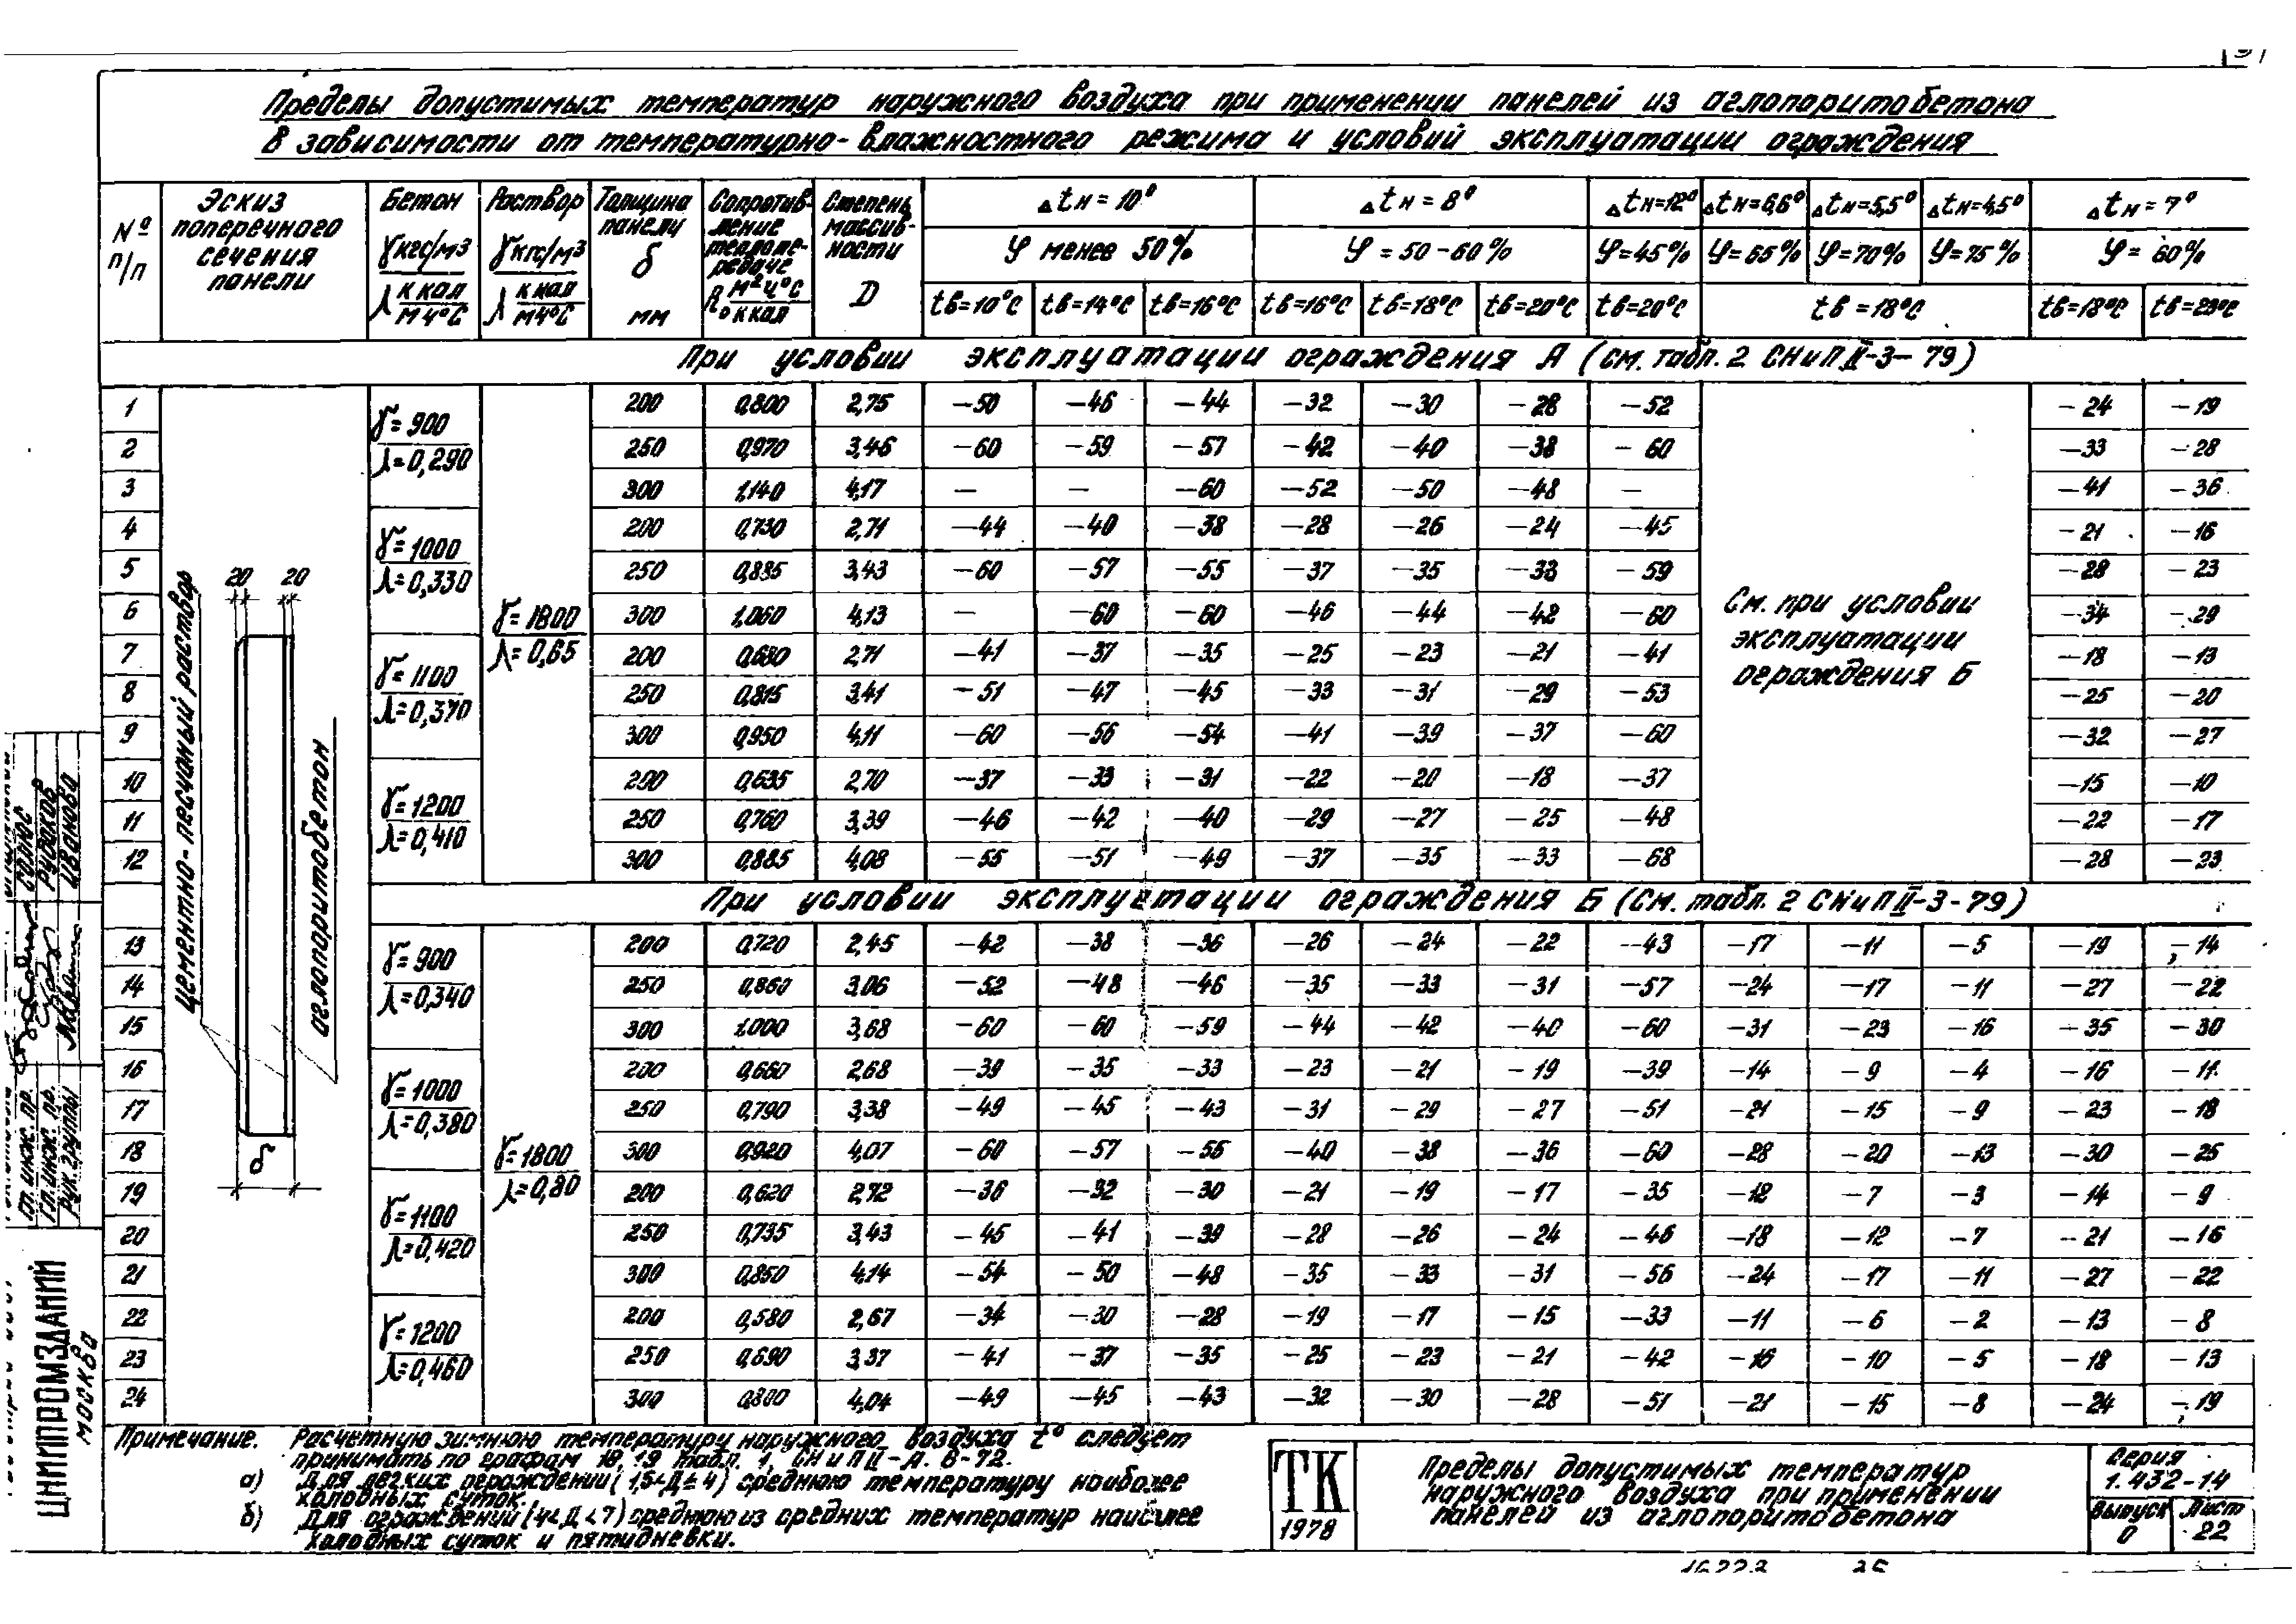 Пределы допустимых температур наружного воздуха при применении панелей из аглопоритобетона
в зависимости от температурно-влажностного режима и условий эксплуатации ограждения
№ п/п | Эскиз поперечного сечения панели | Бетон γ кгс/м3 λ ккал/м ч°С | Раствор γ кгс/м3 λ ккал/м ч°С | Толщина панели δ мм | Сопротивление теплопередаче R₀ м²ч°С/ккал | Степень массивности D | Δtн=10° | Δtн=8° | Δtн=12° | Δtн=6,6° | Δtн=5,5° | Δtн=4,5° | Δtн=7°
φ менее 50% | φ=50-60% | φ=45% | φ=65% | φ=70% | φ=75% | φ=60%
tв=10°С | tв=14°С | tв=16°С | tв=16°С | tв=18°С | tв=20°С | tв=20°С | tв=18°С | tв=18°С | tв=23°С
При условии эксплуатации ограждения А (см. табл. 2 СНиП II-3-79)
γ=1800 λ=0,65
См. при условии
эксплуатации
ограждения Б
γ=900 λ=0,290
1 | 200 | 0,800 | 2,75 | -50 | -46 | -44 | -32 | -30 | -28 | -52 | -24 | -19
2 | 250 | 0,970 | 3,46 | -60 | -59 | -57 | -42 | -40 | -38 | -60 | -33 | -28
3 | 300 | 1,140 | 4,17 | - | - | -60 | -52 | -50 | -48 | - | -41 | -36
γ=1000 λ=0,330
4 | 200 | 0,730 | 2,71 | -44 | -40 | -38 | -28 | -26 | -24 | -45 | -21 | -16
5 | 250 | 0,885 | 3,43 | -60 | -57 | -55 | -37 | -35 | -33 | -59 | -28 | -23
6 | 300 | 1,060 | 4,13 | - | -60 | -60 | -46 | -44 | -42 | -60 | -34 | -29
γ=1100 λ=0,370
7 | 200 | 0,680 | 2,71 | -41 | -37 | -35 | -25 | -23 | -21 | -41 | -18 | -13
8 | 250 | 0,815 | 3,41 | -51 | -47 | -45 | -33 | -31 | -29 | -53 | -25 | -20
9 | 300 | 0,950 | 4,11 | -60 | -56 | -54 | -41 | -39 | -37 | -60 | -32 | -27
γ=1200 λ=0,410
10 | 200 | 0,635 | 2,70 | -37 | -33 | -31 | -22 | -20 | -18 | -37 | -15 | -10
11 | 250 | 0,760 | 3,39 | -46 | -42 | -40 | -29 | -27 | -25 | -48 | -22 | -17
12 | 300 | 0,885 | 4,08 | -55 | -51 | -49 | -37 | -35 | -33 | -68 | -28 | -23
При условии эксплуатации ограждения Б (см. табл. 2 СНиП II-3-79)
γ=1800 λ=0,80
γ=900 λ=0,340
13 | 200 | 0,720 | 2,45 | -42 | -38 | -36 | -26 | -24 | -22 | -43 | -17 | -11 | -5 | -19 | -14
14 | 250 | 0,860 | 3,06 | -52 | -48 | -46 | -35 | -33 | -31 | -57 | -24 | -17 | -11 | -27 | -22
15 | 300 | 1,000 | 3,68 | -60 | -60 | -59 | -44 | -42 | -40 | -60 | -31 | -23 | -16 | -35 | -30
γ=1000 λ=0,380
16 | 200 | 0,660 | 2,68 | -39 | -35 | -33 | -23 | -21 | -19 | -39 | -14 | -9 | -4 | -16 | -11
17 | 250 | 0,790 | 3,38 | -49 | -45 | -43 | -31 | -29 | -27 | -51 | -21 | -15 | -9 | -23 | -18
18 | 300 | 0,920 | 4,07 | -60 | -57 | -55 | -40 | -38 | -36 | -60 | -28 | -20 | -13 | -30 | -25
γ=1100 λ=0,420
19 | 200 | 0,620 | 2,72 | -36 | -32 | -30 | -21 | -19 | -17 | -35 | -12 | -7 | -3 | -14 | -9
20 | 250 | 0,735 | 3,43 | -45 | -41 | -39 | -28 | -26 | -24 | -46 | -18 | -12 | -7 | -21 | -16
21 | 300 | 0,850 | 4,14 | -54 | -50 | -48 | -35 | -33 | -31 | -56 | -24 | -17 | -11 | -27 | -22
γ=1200 λ=0,460
22 | 200 | 0,580 | 2,67 | -34 | -30 | -28 | -19 | -17 | -15 | -33 | -11 | -6 | -2 | -13 | -8
23 | 250 | 0,690 | 3,37 | -41 | -37 | -35 | -25 | -23 | -21 | -42 | -16 | -10 | -5 | -18 | -13
24 | 300 | 0,800 | 4,04 | -49 | -45 | -43 | -32 | -30 | -28 | -51 | -21 | -15 | -8 | -24 | -19
20 20
цементно-песчаный раствор
аглопоритобетон
δ
Примечание. Расчетную зимнюю температуру наружного воздуха t° следует
принимать по графам 18, 19 табл. 1, СНиП II-А. 6-72.
а) Для легких ограждений (1,5<Д≤4) среднюю температуру наиболее
холодных суток.
б) Для ограждений (4<Д<7) среднюю из средних температур наиболее
холодных суток и пятидневки.
ТК
1978
Пределы допустимых температур
наружного воздуха при применении
панелей из аглопоритобетона
Серия
1.432-14
Выпуск Лист
0 22
ЦНИИПРОМЗДАНИЙ
МОСКВА
Гл. инж. пр.
Гл. инж. пр.
Рук. группы
Рудаков
Иванова
16223 35